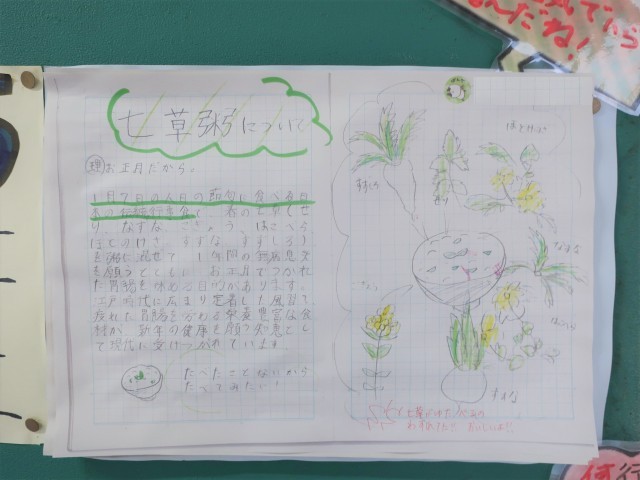 七草粥について
理 お正月だから。
1月7日の人日の節句に食べる日
本の伝統行事食で、春の七草(せ
り、なずな、ごぎょう、はこべら
ほとけのざ、すずな、すずしろ)
を粥に混ぜて、1年間の無病息災
を願うとともに、お正月でつかれ
た胃腸を休める目的があります。
江戸時代に広まり定着した風習で
疲れた胃腸を労わる栄養豊富な食
材が、新年の健康を願う知恵とし
て現代に受けつがれています。
たべたことないから
たべてみたい!
ほとけのざ
すずしろ
せり
なずな
はこべら
すずな
んだね!